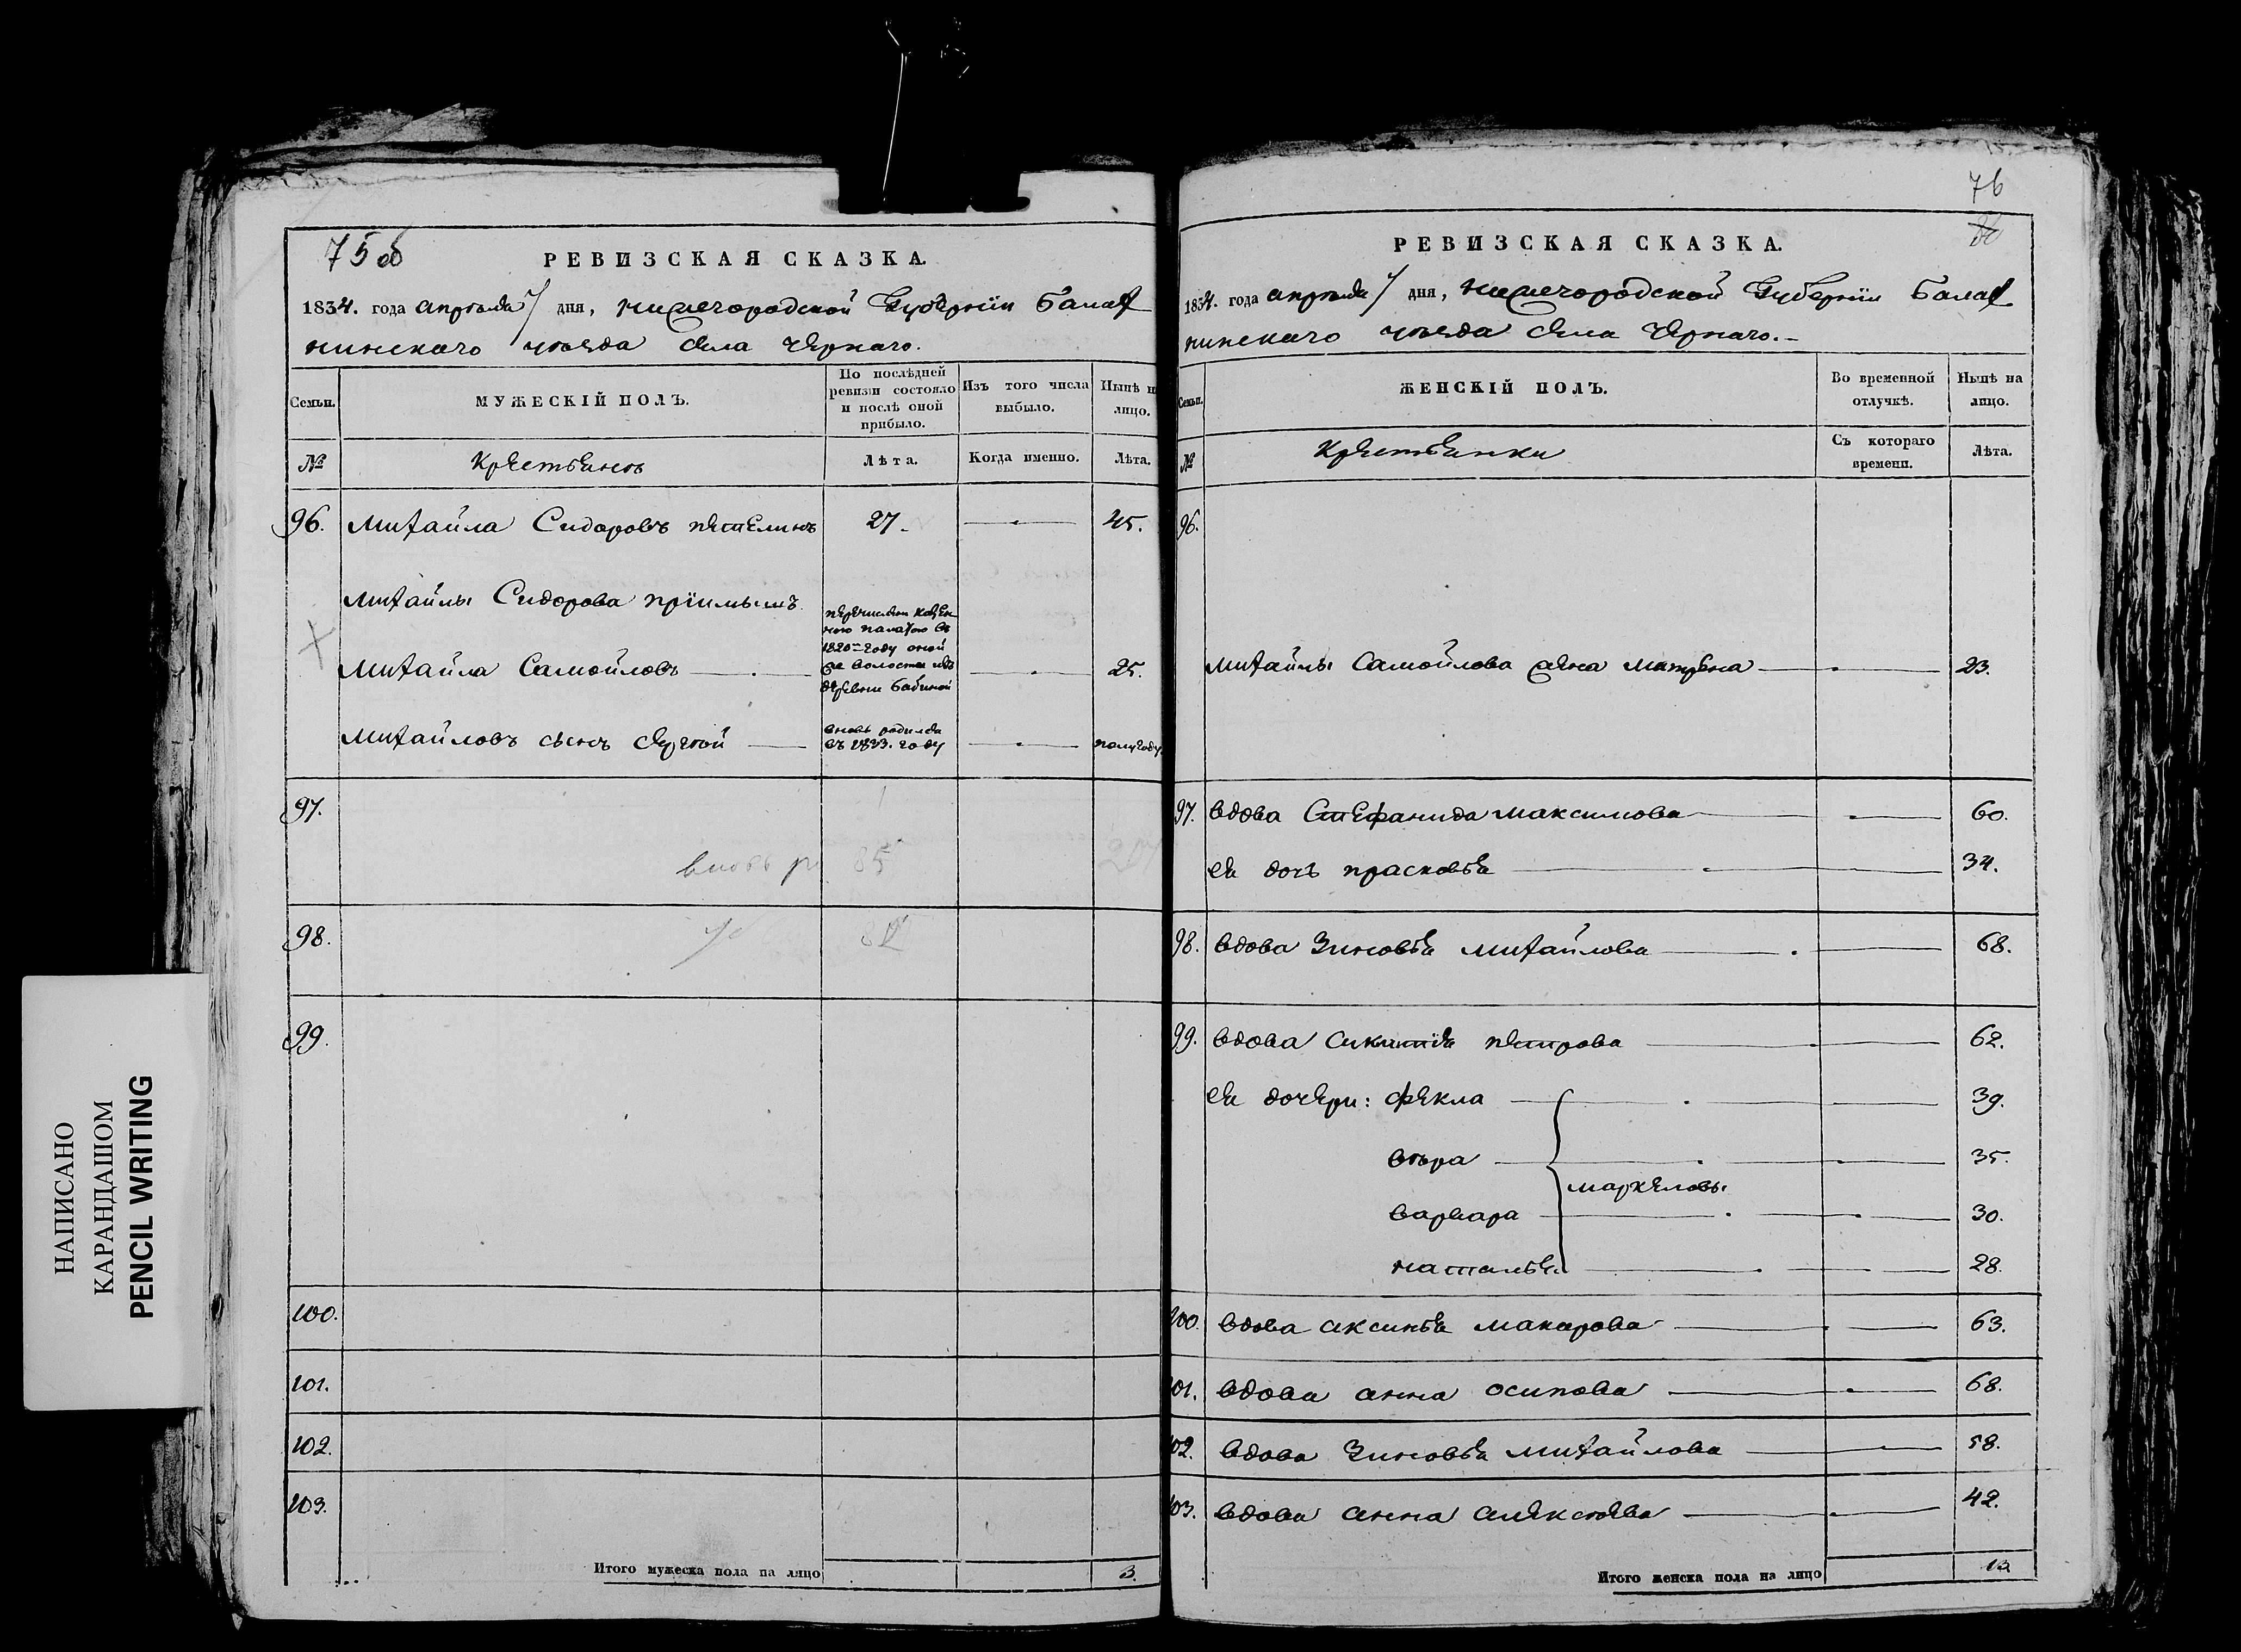 75об
РЕВИЗСКАЯ СКАЗКА.
1834. года апрѣля 7 дня, нижегородской Губернїи Балах
нинскаго уѣзда села Чернаго.
Семьи.
МУЖЕСКІЙ ПОЛЪ.
По послѣдней ревизіи состояло и послѣ оной прибыло.
Изъ того числа выбыло.
Нынѣ н лицо.
№
Крестьянъ
Лѣта.
Когда именно.
Лѣта.
96. Михайла Сидоровъ петелинъ 27. 45.
Михайлы Сидорова прїимышъ
Михайла Самойловъ 25.
перечислен казен
ною палатою въ
1820 году оной
же волости изъ
деревни Бабиной
Михайловъ сынъ сергей полугоду
вновь родился
въ 1833. году
97.
вновь ро 85
98.
99.
100.
101.
102.
103.
Итого мужеска пола на лицо 3.
76
РЕВИЗСКАЯ СКАЗКА.
1834. года апрѣля 7 дня, нижегородской Губернїи Балах
нинскаго уѣзда села Чернаго.
Семьи.
ЖЕНСКІЙ ПОЛЪ.
Во временной отлучкѣ.
Нынѣ на лицо.
№
Крестьянки
Съ котораго времени.
Лѣта.
96.
Михайлы Самойлова жена матрена 23.
97. вдова Стефанида максимова 60.
ея дочь прасковья 34.
98. вдова Зиновья михайлова 68.
99. вдова петрова 62.
ея дочери: фекла 39.
вѣра 35.
маркеловы
варвара 30.
наталья 28.
100. вдова аксинья макарова 63.
101. вдова анна осипова 68.
102. вдова Зиновья михайлова 58.
103. вдова анна алексѣева 42.
Итого женска пола на лицо 13
НАПИСАНО
КАРАНДАШОМ
PENCIL WRITING